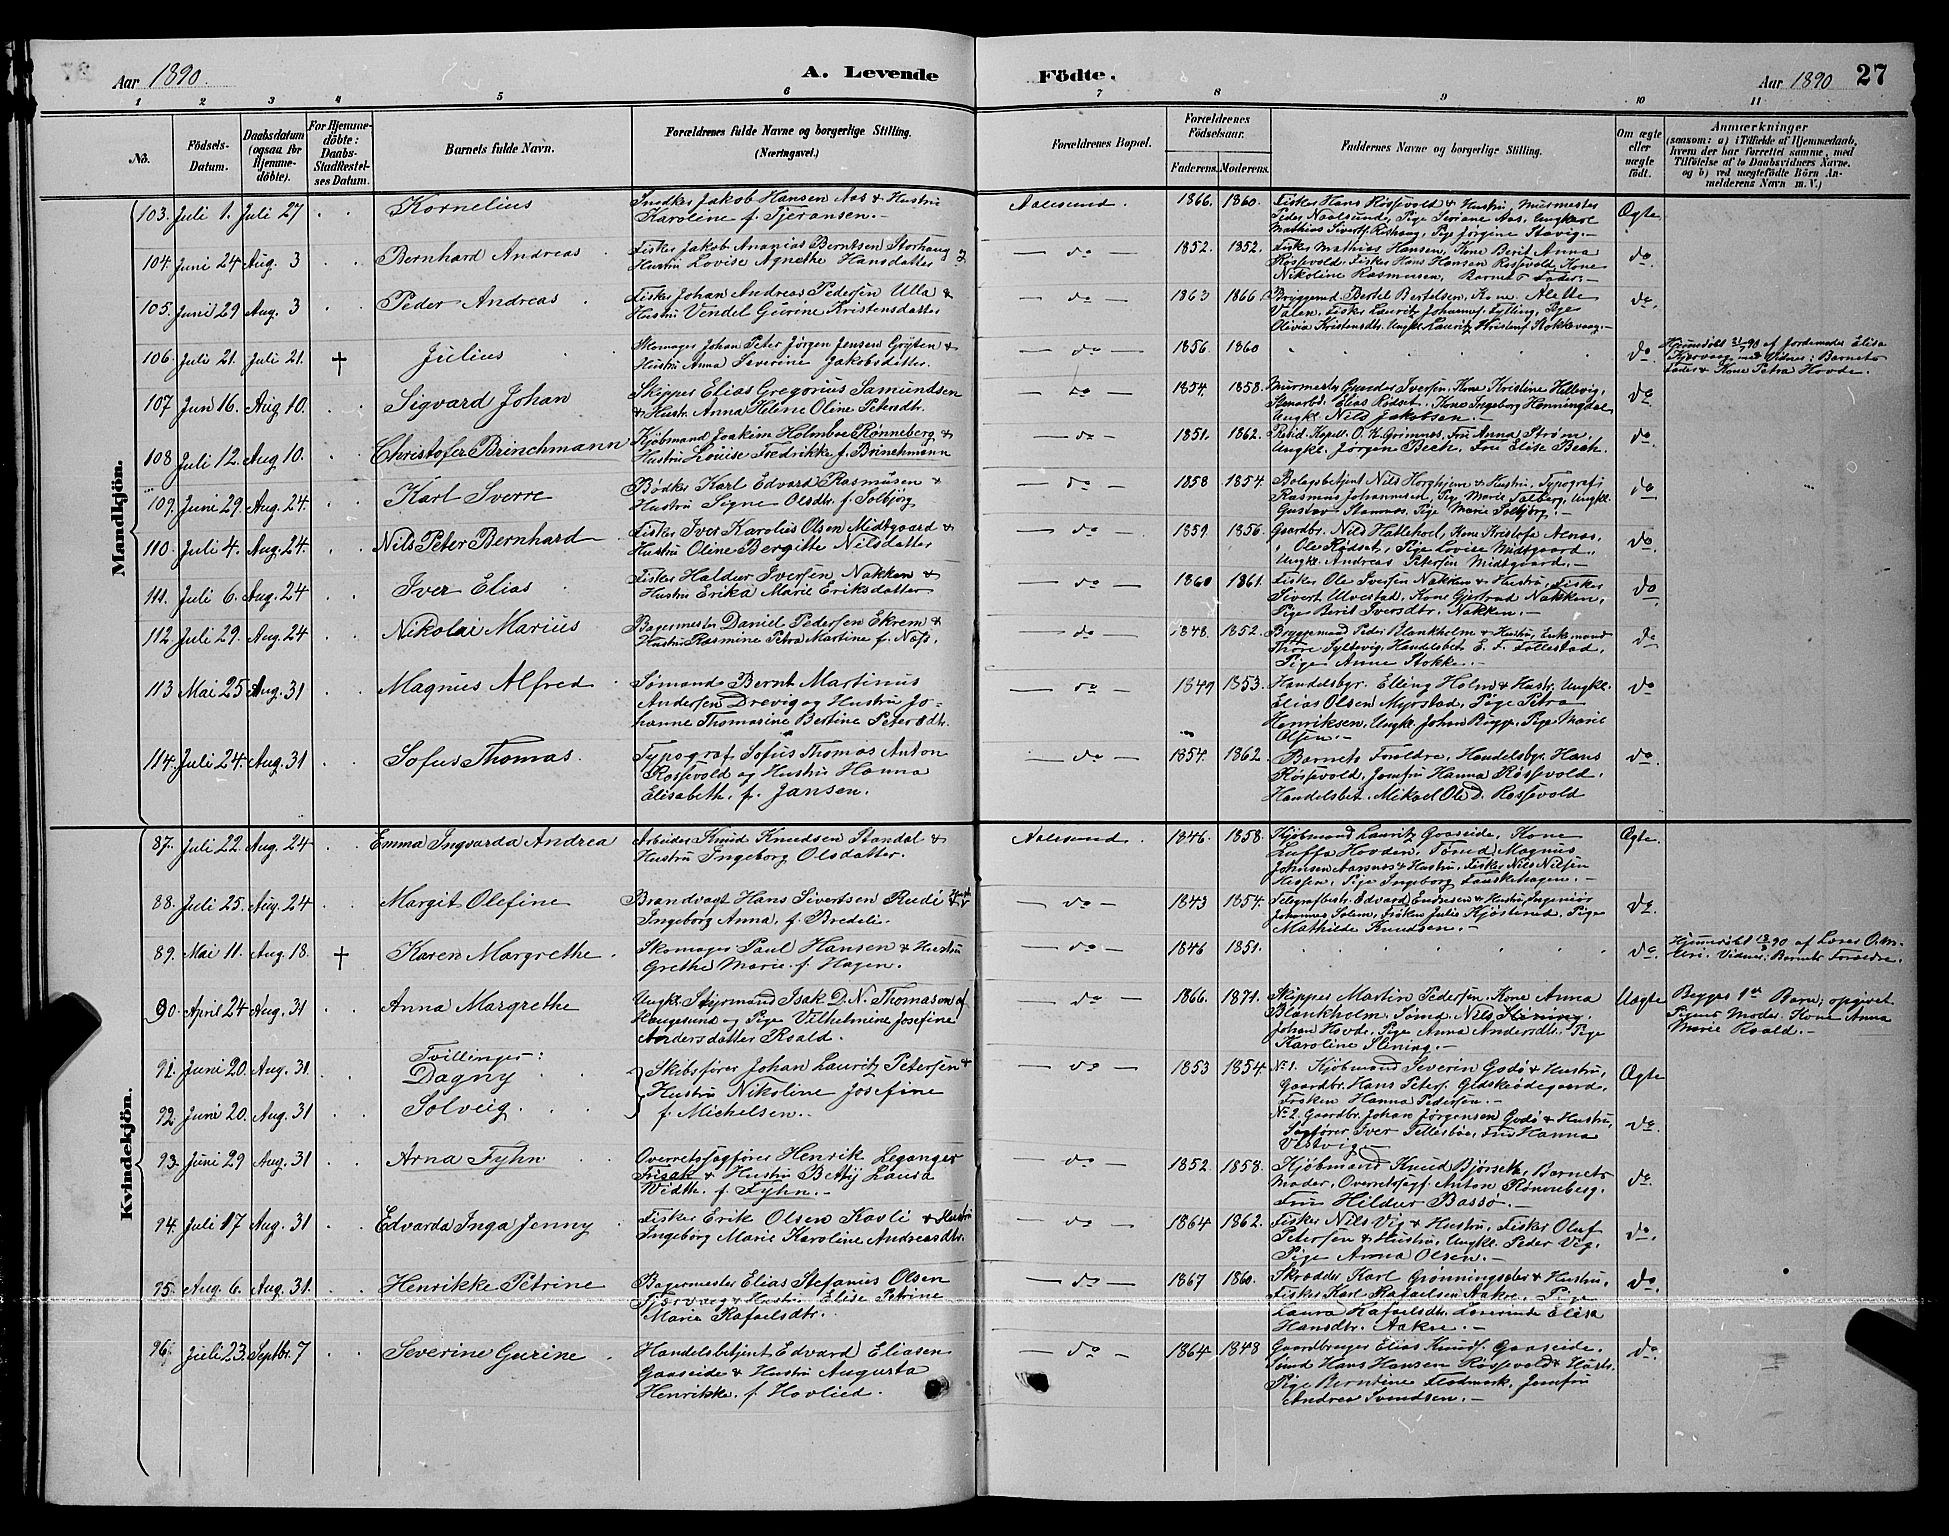 Aar 1890.
A. Levende
Födte.
Aar 1890
27
1 2 3 4 5 6 7 8 9 10 11
No.
Födsels-
Datum.
Daabsdatum
(ogsaa for
Hjemme-
döbte).
For Hjemme-
döbte:
Daabs-
Stadfæstel-
ses Datum.
Barnets fulde Navn.
Forældrenes fulde Navne og borgerlige Stilling.
(Næringsvei.)
Forældrenes Bopæl.
Forældrenes
Födselsaar.
Faderens. Moderens.
Faddernes Navne og borgerlige Stilling.
Om ægte
eller
uægte
födt.
Anmærkninger
(saasom: a) i Tilfælde af Hjemmedaab,
hvem der har forrettet samme, med
Tilföielse af to Daabsvidners Navne,
og b) ved uægtefödte Börn An-
melderens Navn m. V.)
Mandkjön.
103. Juli 1. Juli 27 Kornelius
Jakob Hansen Aas & Hustru
Karoline f. Tjeransen.
Aalesund. 1866. 1860.
Fisker Hans Røssevold & Hustru, Murmester
Peder Naalsund, Pige Seriane Aas, Ungkarl
Mathias Sivertsen Pige Jørgine Slavig.
Ægte
104. Juni 24 Aug. 3 Bernhard Andreas
Fisker Jakob Ananias Berntsen Storhaug &
Hustru Lovise Agnethe Hansdatter
do 1852. 1852.
Fisker Mathias Hansen, Kone Berit Anna
Røssevold. Fisker Hans Hansen Røssevold, Kone
Nikoline Rasmusen, Barnets Fader.
do.
105. Juni 29 Aug. 3 Peder Andreas
Fisker Johan Andreas Pedersen Ulla &
Hustru Vendel Gurine Kristensdatter
do 1863 1866.
Bryggemd. Bertel Bertelsen, Kone Alette
Valen, Fisker Lauritz Johannes. Fylling, Pige
Olivia Kristensdtr. Ungkl. Lauritz Kristens. Stokkevaag.
do.
106. Juli 21. Juli 21. † Julius
Skomager Johan Peter Jørgen Jensen Grytten &
Hustru Anna Severine Jakobsdatter.
do 1856. 1860
do.
Hjemmedøbt 21/7 90 af Jordemoder Elisa
Kjervaag med Vidner: Barnets
Fader & Kone Petra Hovde.
107 Jun 16. Aug 10. Sigvard Johan
Skipper Elias Gregorius Samundsen
& Hustr. Anna Helene Oline Petersdtr.
do 1854. 1858.
Murmester Gunder Iversen, Kone Kristine Hellevig,
Stenarbd. Elias Rødset, Kone Ingeborg Henningdal
Ungkl. Nils Jakobsen.
do
108 Juli 12. Aug 10. Christofer Brinchmann
Kjøbmand Joakim Holmboe Rønneberg &
Hustru Louise Fredrikke f. Brinchmann
do 1851. 1862.
Resid. Kapell. O. K. Grimnes, Fru Anna Strøm,
Ungkl. Jørgen Bech, Fru Elise Bech.
do
109. Juni 29. Aug. 24. Karl Sverre
Bødker Karl Edvard Rasmusen &
Hustru Signe Olsdtr. f. Solbjørg
do. 1858 1854.
Bolagsbetjent Nils Horghjem & Hustru, Typograf
Rasmus Johannesen, Pige Marie Solberg, Ungkl.
Gustav Stamnes. Pige Marie Solbjørg.
do
110. Juli 4. Aug. 24. Nils Peter Bernhard
Fisker Iver Karolius Olsen Midtgaard &
Hustru Oline Bergitte Nilsdatter
do 1859. 1856.
Gaardbr. Nils Hatlehol, Kone Kristofa Aenes,
Ole Rødset, Pige Lovise Midtgaard,
Ungkl. Andreas Petersen Midtgaard.
do
111. Juli 6. Aug. 24 Iver Elias
Fisker Haldur Iversen Nakken &
Hustru Erika Marie Eriksdatter
do 1860 1861.
Fisker Ole Iversen Nakken & Hustru, Fisker
Sivert Ulvestad, Kone Gjertrud Nakken,
Pige Berit Iversdtr. Nakken.
do.
112. Juli 29. Aug. 24 Nikolai Marius
Bagermester Daniel Pedersen Ekrem &
Hustru Rasmine Petra Martine f. Næss.
do 1848. 1852.
Bryggemand Peder Blankholm & Hustru, Enkemand
Thore Syltevig, Handelsbet. E. F. Follestad,
Pige Anne Stokke.
do
113 Mai 25 Aug. 31 Magnus Alfred
Sømand Bernt Martinus
Andersen Drevig og Hustru Jo-
hanne Thomasine Bertine Petersdtr.
do 1849 1853.
Handelsbgr. Elling Holm & Hustr. Ungkl.
Elias Olsen Myrstad, Pige Petra
Henriksen, Ungkl. Johan Bugge, Pige Marie
Olsen.
do
114. Juli 24. Aug. 31 Sofus Thomas.
Typograf Sofus Thomas Anton
Røssevold og Hustru Hanna
Elisabeth. f. Jansen.
do 1854. 1862.
Barnets Foreldre, Handelsbgr. Hans
Røssevold, Jomfru Hanna Røssevold,
Handelsbet. Mikael Ole D. Røssevold
do.
Kvindekjön.
87. Juli 22. Aug. 24 Emma Ingvarda Andrea
Arbeider Knud Knudsen Standal &
Hustru Ingeborg Olsdatter.
Aalesund 1846. 1858.
Kjøbmand Lauritz Gaaseide, Kone
Luffa Hovden, Tømd. Magnus
Johnsen Aarsnes & Hustru, Fisker Nils Nilsen
Hessen, Pige Ingeborg
Ægte.
88. Juli 25. Aug. 24 Margit Olefine
Brandvagt Hans Sivertsen Rudi & Hustr.
Ingeborg Anna, f. Bredeli.
do 1843 1854.
Telegrafbestr. Edvard Endresen & Hustru, Ingeniør
Johannes Solem, Frøken Julie Kjøstrud, Pige
Mathilde Knudsen.
do
89. Mai 11. Aug. 18. † Karen Margrethe.
Skomager Paul Hansen & Hustru
Grethe Marie f. Hagen.
do 1846 1851.
do.
Hjemmedøbt 18/8 90 af Lærer O. M.
Vidner: Barnets Foreldre.
90. April 24 Aug. 31 Anna Margrethe
Ungkl. Styrmand Isak D. N. Thomasen af
Haugesund og Pige Vilhelmine Josefine
Andersdatter Roald.
do 1866. 1871.
Skipper Martin Pedersen, Kone Anna
Blankholm, Tømd. Nils Slining,
Johan Hovde, Pige Anna Andersdtr. Pige
Karoline Slining.
Uægte
Begges 1ste Barn; opgivet
Pigens Moder Kone Anna
Marie Roald.
Tvillinger:
91. Juni 20. Aug. 31 Dagny
92. Juni 20. Aug. 31 Solveig.
Skibsfører Johan Lauritz Petersen &
Hustru Nikoline Josefine
f. Michelsen.
do 1853 1854.
No 1. Kjøbmand Severin Godø & Hustru,
Gaardbr. Hans Peters. Gidskeødegaard,
Frøken Hanna Pedersen.
No 2. Gaardbr. Johan Jørgensen Godø & Hustru,
Sagfører Iver Tellesbøe, Fru Hanna
Vestvig
Ægte
do.
93. Juni 29 Aug. 31 Arna Fyhn
Overretssagfører Henrik Leganger
Frisak & Hustru Betty Laura
Wedth. f. Fyhn.
do 1852 1858.
Kjøbmand Knud Bjørseth, Barnets
Moder, Overretssagf. Anton Rønneberg,
Fru Hildur Bassø.
do.
94. Juli 17 Aug. 31 Edvarda Inga Jenny
Fisker Erik Olsen Kovli & Hustru
Ingeborg Marie Karoline Andreasdtr.
do 1864 1862.
Fisker Nils Vig & Hustru, Fisker Oluf
Petersen & Hustru, Ungkl. Peder Vig,
Pige Anna Olsen.
do.
95. Aug. 6. Aug. 31. Henrikke Petrine
Bagermester Elias Stefanus Olsen
Tjørvaag & Hustru Elise Petrine
Marie Rafaelsdtr.
do 1867 1860.
Skrædder Karl Grønningsæter & Hustru,
Fisker Karl Rafaelsen Aakre, Pige
Laura Rafaelsdtr. Lærerinde Elisa
Hansdtr. Aakre.
do.
96. Juli 23. Septbr. 7 Severine Gurine
Handelsbetjent Edvard Eliasen
Gaaseide & Hustru Augusta
Henrikke. f. Hovlied.
do 1864 1848
Gaardbruger Elias Knuds. Gaaseide,
Tømd. Hans Hansen Røssevold & Hustr.
Pige Berntine Flodmark, Jomfru
Andrea Svendsen.
do.